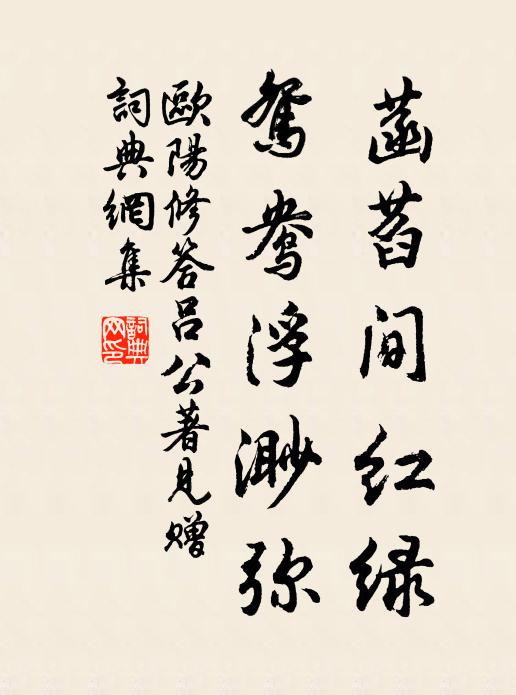 菡萏间红绿
鸳鸯浮渺弥
歐陽修答吕公著見赠
詞典網集
詞典
网印